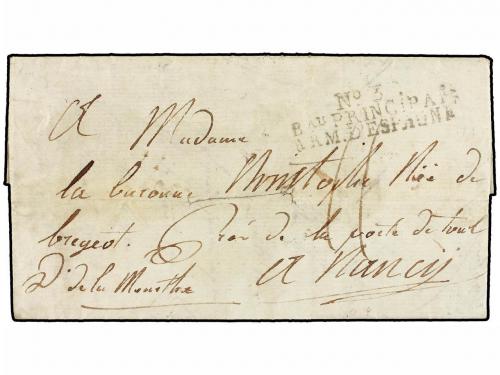 No 5
Bau PRINCIPAL
ARM. D'ESPAGNE
A Madame
la baronne Née de
bregeot. Près de la porte de toul
Dt de la Meurthe
A Nancy